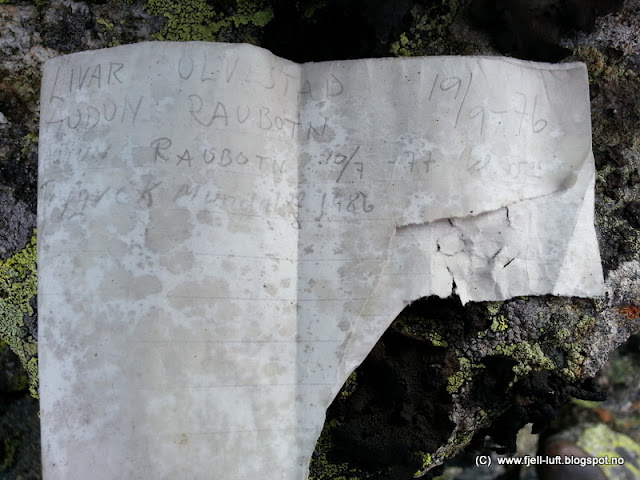 EIVAR ULVESTAD 19/9-76
AUDUN RAUBOTN
RAUBOTN 10/7 -77
Mundal 1986
(C) www.fjell-luft.blogspot.no